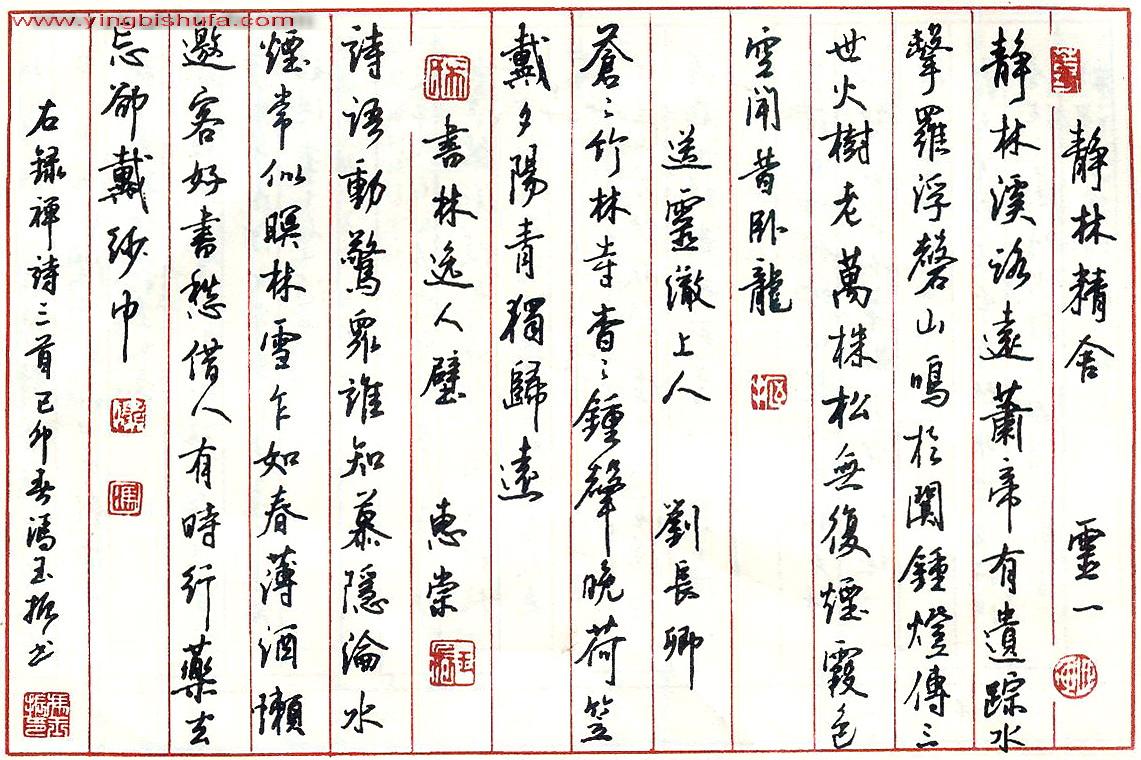 www.yingbishufa.com
静林精舍 靈一
静林溪路遠蕭帝有遺踪水
擊羅浮磬山鳴於闐鍾燈傳三
世火樹老萬株松無復煙霞色
空聞昔卧龍
送靈澈上人 劉長卿
蒼〻竹林寺杳〻鍾聲晚荷笠
戴夕陽青獨歸遠
書林逸人壁 惠崇
詩語動驚眾誰知慕隱淪水
煙常似暝林雪乍如春薄酒懶
邀客好書愁借人有時行藥去
忘卻戴紗巾
右録禪詩三首己卯春馮玉振书